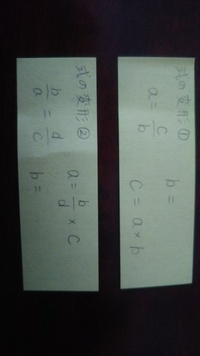 式の変形①
a = c/b
b =
c = a × b
式の変形②
b/a = d/c
a = b/d × c
b =